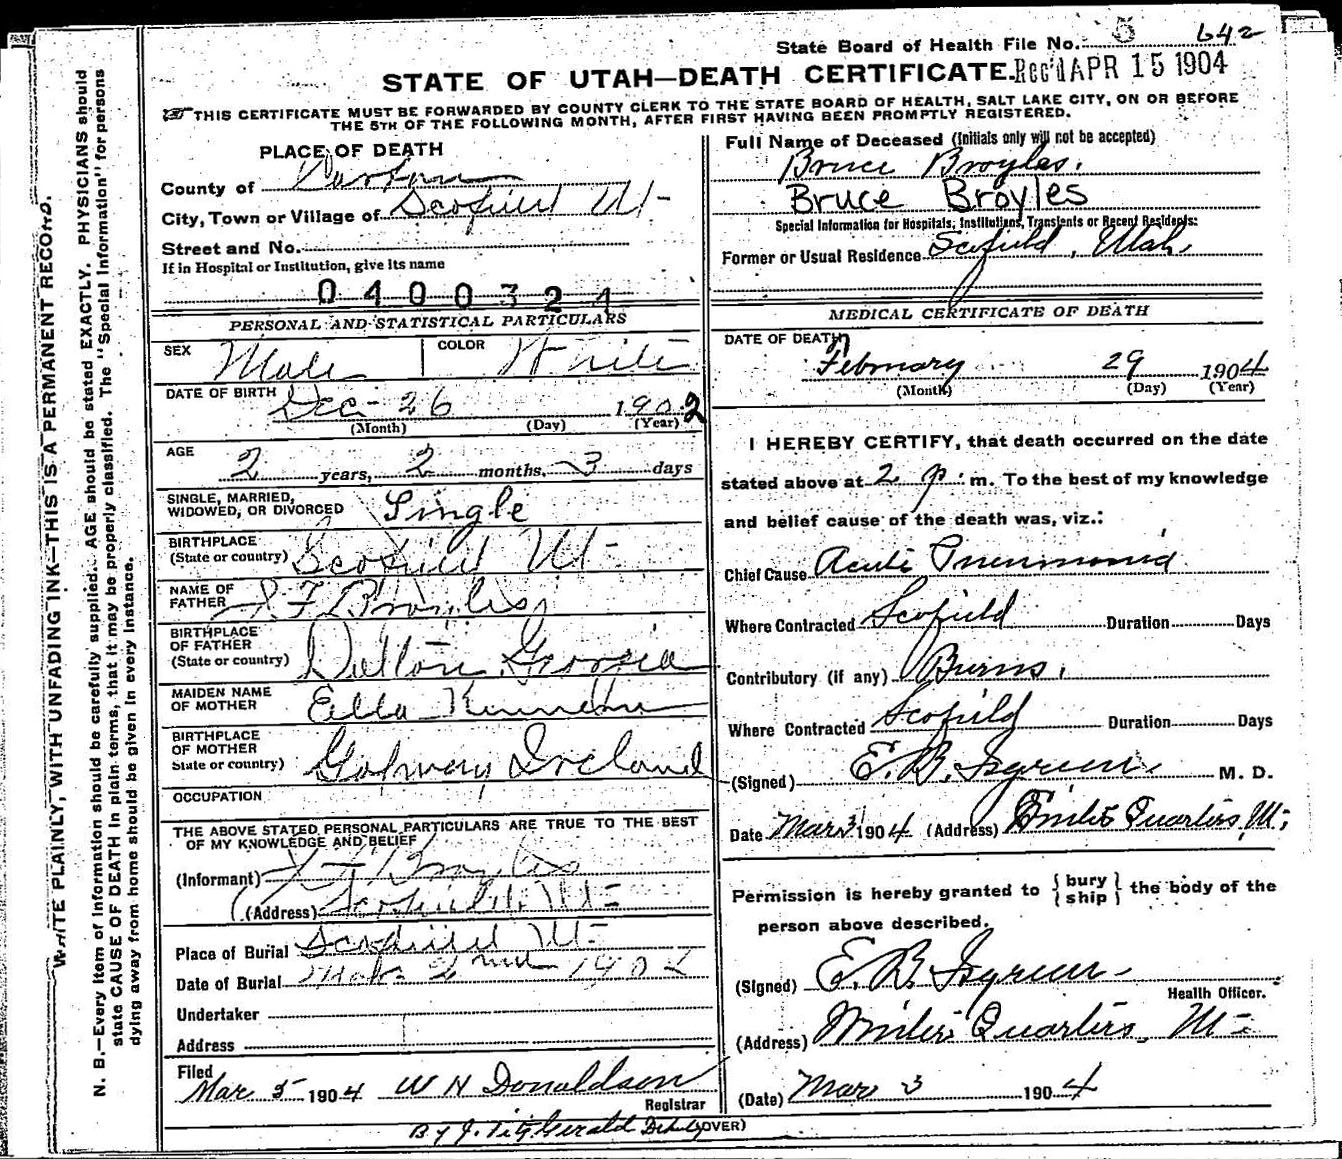 State Board of Health File No. 5 642
STATE OF UTAH—DEATH CERTIFICATE. Rec'd APR 15 1904
THIS CERTIFICATE MUST BE FORWARDED BY COUNTY CLERK TO THE STATE BOARD OF HEALTH, SALT LAKE CITY, ON OR BEFORE
THE 5TH OF THE FOLLOWING MONTH, AFTER FIRST HAVING BEEN PROMPTLY REGISTERED.
WRITE PLAINLY, WITH UNFADING INK—THIS IS A PERMANENT RECORD.
N. B.—Every item of information should be carefully supplied. AGE should be stated EXACTLY. PHYSICIANS should
state CAUSE OF DEATH in plain terms, that it may be properly classified. The "Special Information" for persons
dying away from home should be given in every instance.
PLACE OF DEATH
County of
City, Town or Village of Scofield Ut-
Street and No.
If in Hospital or Institution, give its name
0400321
PERSONAL AND STATISTICAL PARTICULARS
SEX Male COLOR White
DATE OF BIRTH Dec- 26 1902
(Month) (Day) (Year)
AGE 2 years, 2 months, 3 days
SINGLE, MARRIED,
WIDOWED, OR DIVORCED Single
BIRTHPLACE
(State or country) Scofield Ut-
NAME OF
FATHER F Broyles
BIRTHPLACE
OF FATHER
(State or country) Dalton Georgia
MAIDEN NAME
OF MOTHER Ella
BIRTHPLACE
OF MOTHER
State or country) Galway Ireland
OCCUPATION
THE ABOVE STATED PERSONAL PARTICULARS ARE TRUE TO THE BEST
OF MY KNOWLEDGE AND BELIEF
(Informant) F Broyles
(Address) Scofield Ut-
Place of Burial Scofield Ut-
Date of Burial Mch 2nd 1904
Undertaker
Address
Filed
Mar 5 1904 W H Donaldson
Registrar
By J. Fitzgerald Dep (OVER)
Full Name of Deceased (Initials only will not be accepted)
Bruce Broyles.
Bruce Broyles
Special Information for Hospitals, Institutions, Transients or Recent Residents:
Former or Usual Residence Scofield, Utah
MEDICAL CERTIFICATE OF DEATH
DATE OF DEATH
February 29 1904
(Month) (Day) (Year)
I HEREBY CERTIFY, that death occurred on the date
stated above at 2 p. m. To the best of my knowledge
and belief cause of the death was, viz.:
Chief Cause Acute Pneumonia
Where Contracted Scofield Duration Days
Contributory (if any) Burns.
Where Contracted Scofield Duration Days
(Signed) E. B. Isgreen M. D.
Date Mar 3 1904 (Address) Winter Quarters, Ut;
Permission is hereby granted to {bury
ship} the body of the
person above described.
(Signed) E. B. Isgreen
Health Officer.
(Address) Winter Quarters, Ut-
(Date) Mar 3 1904